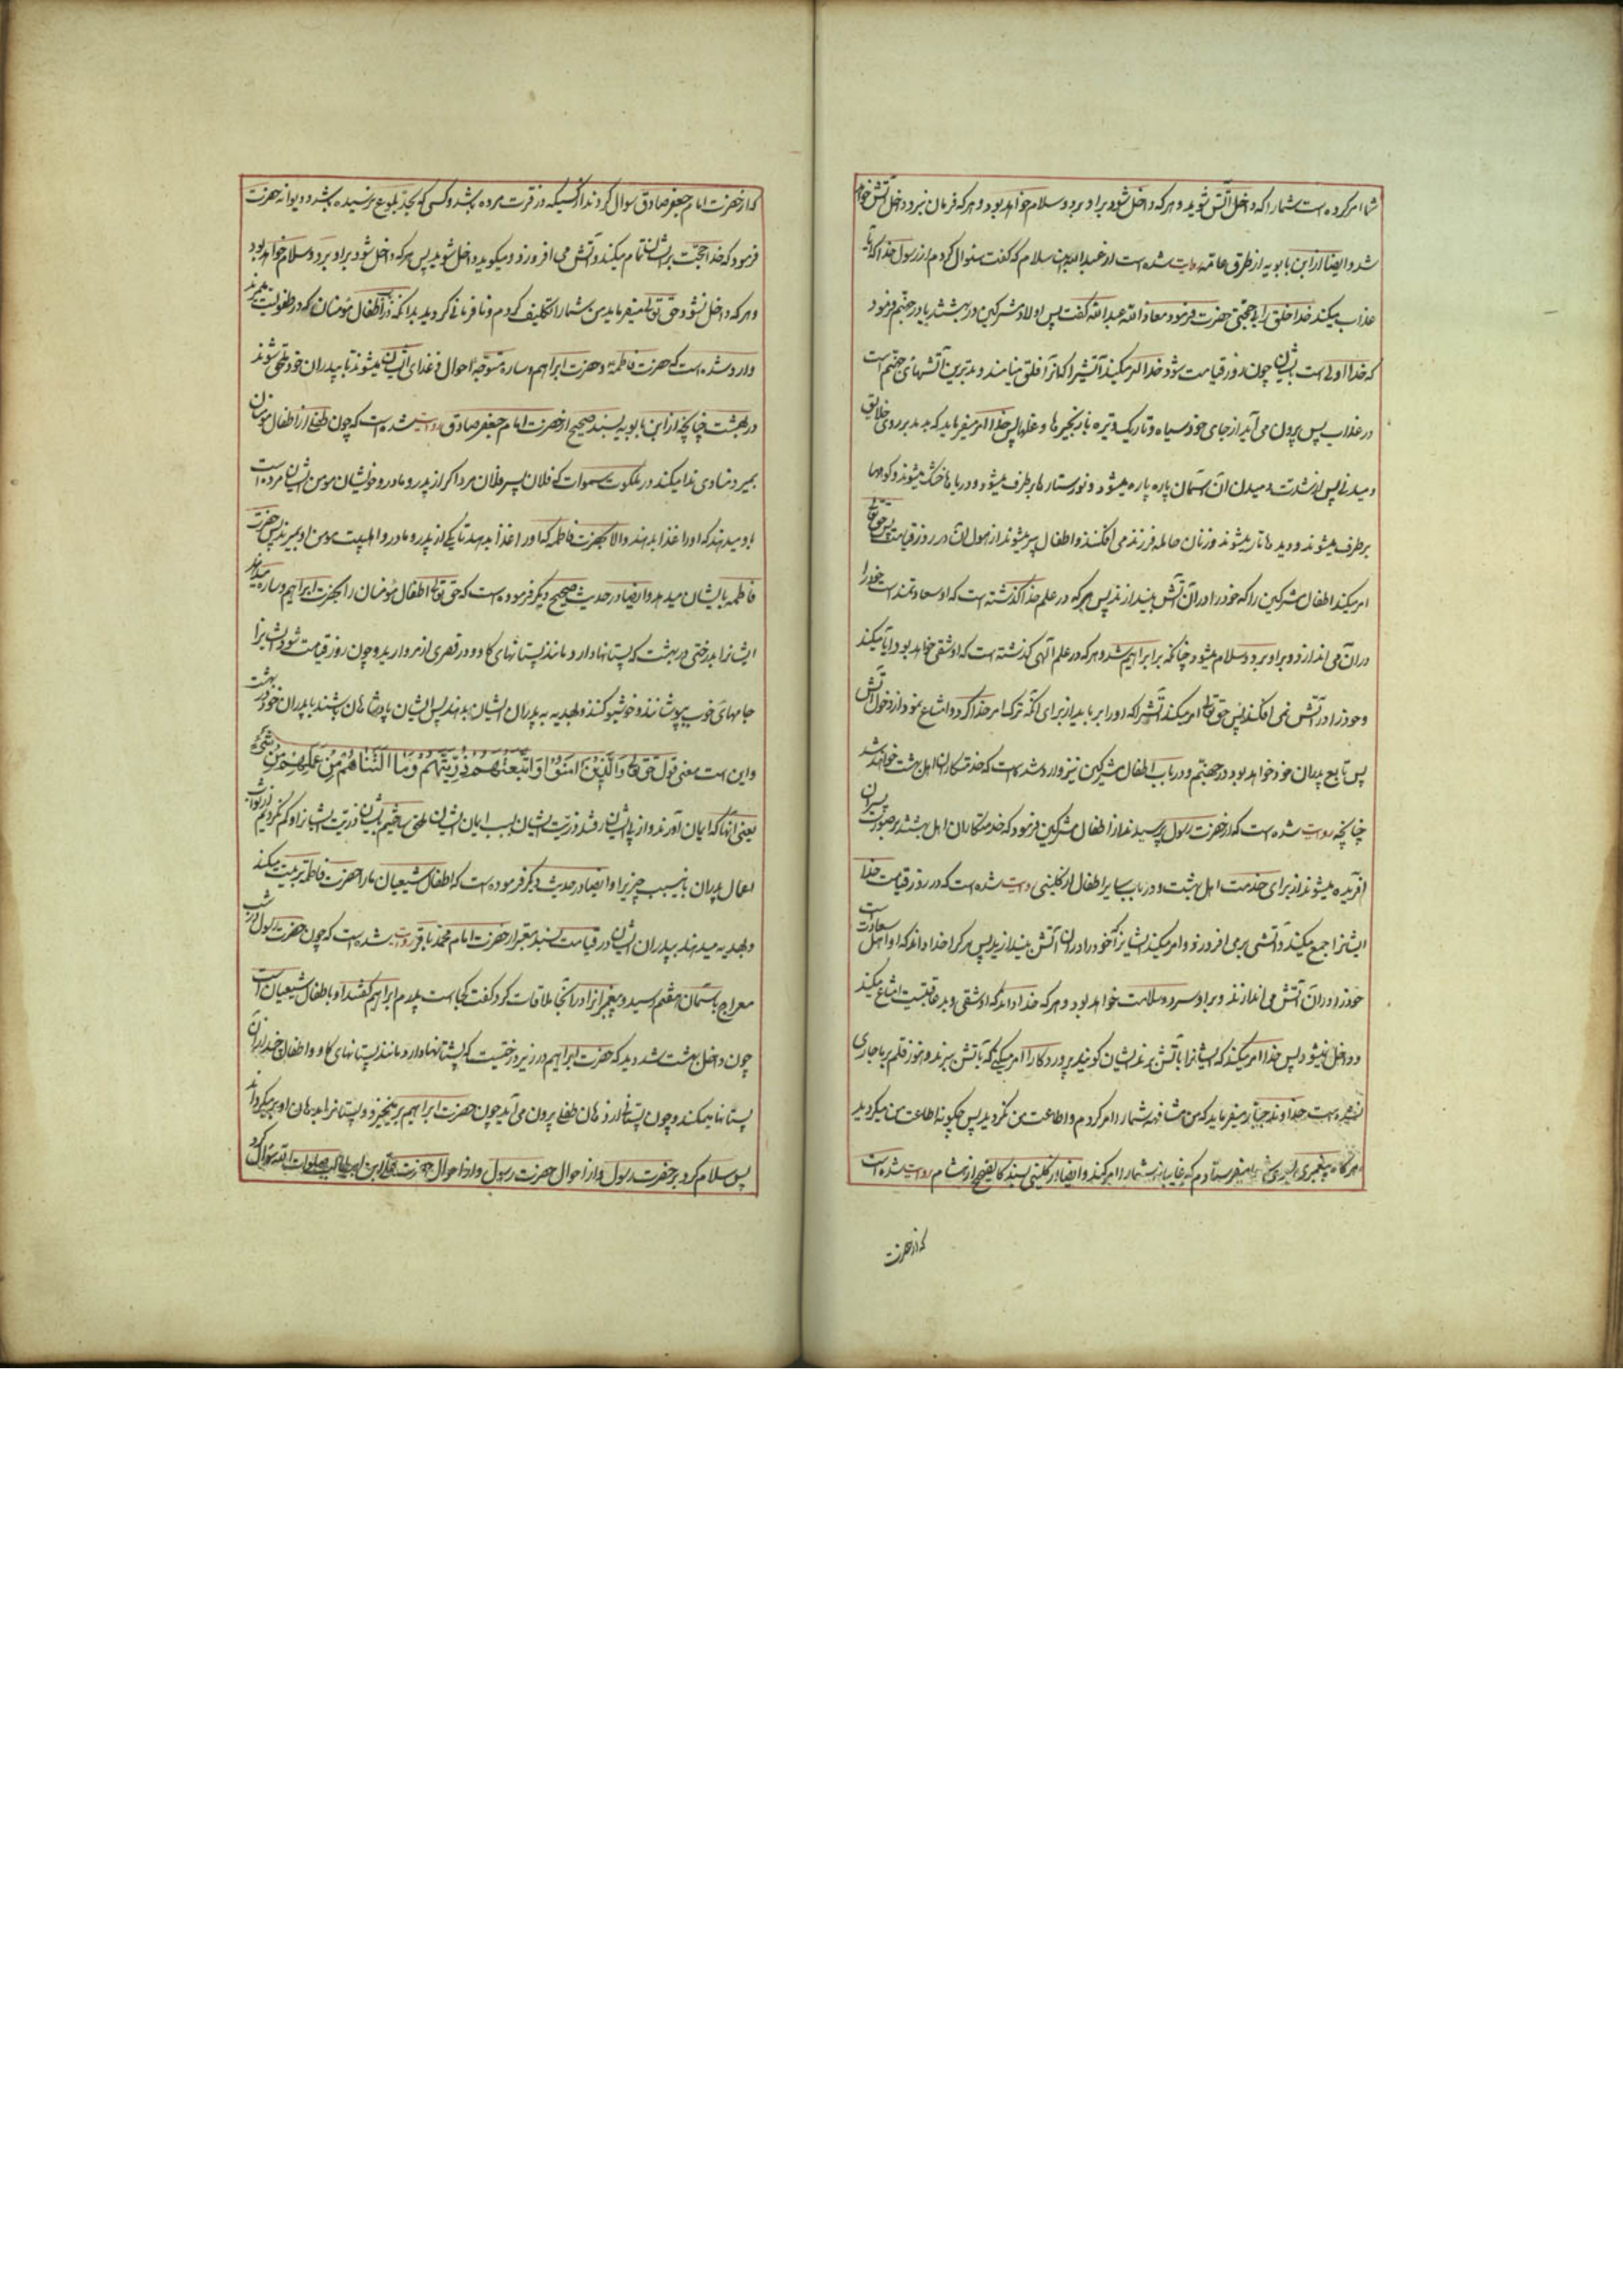 شما امر کرده است شما را که داخل آتش شوید و هر که داخل شود بر او برد و سلام خواهد بود و هر که فرمان نبرد داخل آتش خواهد
شد و ایضا از ابن بابویه از طرق عامه روایت شده است از عبدالله بن سلام که گفت سئوال کردم از رسول خدا که آیا
عذاب میکند خدا خلق را بی حجتی حضرت فرمود معاذ الله عبدالله گفت پس اولاد مشرکین در بهشتند یا در جهنم فرمود
که خدا اولی است بایشان چون روز قیامت شود خدا امر میکند آتشی را که آنرا فلق مینامند و بدترین آتشهای جهنم است
در عذاب پس بیرون می آید از جای خود سیاه و تاریک و تیره با زنجیرها و غلها پس خدا امر میفرماید که بدمد بر روی خلایق
دمیدنی پس از شدت دمیدن آن آسمان پاره پاره میشود و نور ستارها برطرف میشود و دریاها خشک میشوند و کوهها
برطرف میشوند و دیدها تار میشوند و زنان حامله فرزند می افکنند و اطفال پیر میشوند از هول آن در روز قیامت پس حق تعالی
امر میکند اطفال مشرکین را که خود را در آن آتش بیندازند پس هر که در علم خدا گذشته است که او سعادتمند است خود را
در آن می اندازد و بر او برد و سلام میشود چنانکه بر ابراهیم شد و هر که در علم الهی گذشته است که او شقی خواهد بود ابا میکند
و خود را در آتش نمی افکند پس حق تعالی امر میکند آتش را که او را برباید از برای آنکه ترک امر خدا کرد و امتناع نمود از دخول آتش
پس تابع پدران خود خواهد بود در جهنم و در باب اطفال مشرکین نیز وارد شده است که خدمتکاران اهل بهشت خواهند شد
چنانچه روایت شده است که از حضرت رسول پرسیدند از اطفال مشرکین فرمود که خدمتکاران اهل بهشتند بر صورت پسران
آفریده میشوند از برای خدمت اهل بهشت و در باب سایر اطفال از کلینی روایت شده است که در روز قیامت خدا
ایشانرا جمع میکند و آتشی برمی افروزد و امر میکند ایشانرا که خود را در آن آتش بیندازند پس هر که را خدا داند که او اهل سعادت است
خود را در آن آتش می اندازد و بر او سرد و سلامت خواهد بود و هر که خدا داند که او شقی و بد عاقبتست امتناع میکند
و داخل نمیشود پس خدا امر میکند که ایشانرا باآتش برند ایشان گویند پروردگارا امر میکنی که باآتش برند و هنوز قلم بر ما جاری
نشده است خداوند جبار میفرماید که من مشافهه شما را امر کردم و اطاعت من نکردید پس چگونه اطاعت من میکردید
هر گاه پیغمبری بسوی شما میفرستادم که غایبانه شما را امر کند و ایضا از کلینی بسند کالصحیح از هشام روایت شده است
که از حضرت
که از حضرت امام جعفر صادق سوال کردند از کسیکه در فترت مرده باشد و کسی که بحد بلوغ نرسیده باشد و دیوانه حضرت
فرمود که خدا حجت بر ایشان تمام میکند و آتش می افروزد و میگوید داخل شوید پس هر که داخل شود بر او برد و سلام خواهد بود
و هر که داخل نشود حق تعالی میفرماید من شما را تکلیف کردم و نافرمانی کردید بدانکه در اطفال مؤمنان که در طفولیت بمیرند
وارد شده است که حضرت فاطمه و حضرت ابراهیم و ساره متوجه احوال و غذای ایشان میشوند تا بپدران خود ملحق شوند
در بهشت چنانچه از ابن بابویه بسند صحیح از حضرت امام جعفر صادق روایت شده است که چون طفلی از اطفال مؤمنان
بمیرد منادی ندا میکند در ملکوت سموات که فلان پسر فلان مرد اگر از پدر و مادر و خویشان مومن ایشان مرده است
باو میدهند که او را غذا بدهند و الا بحضرت فاطمه که او را غذا بدهد تا یکی از پدر و مادر و اهلبیت مومن او بمیرند پس حضرت
فاطمه بایشان میدهد و ایضا در حدیث صحیح دیگر فرموده است که حق تعالی اطفال مؤمنان را بحضرت ابراهیم و ساره میدهد
ایشانرا بدرختی در بهشت که پستانها دارد مانند پستانهای گاو و در قصری از مروارید و چون روز قیامت شود ایشانرا
جامهای خوب بپوشانند و خوشبو کنند و بهدیه به پدران ایشان بدهند پس ایشان پادشاهان باشند با پدران خود در بهشت
و این است معنی قول حق تعالی وَالَّذِینَ اٰمَنُوا وَاتَّبَعَتْهُمْ ذُرِّیَّتُهُمْ وَمَا اَلَتْنَاهُمْ مِنْ عَمَلِهِمْ مِنْ شَیْءٍ
یعنی آنها که ایمان آوردند و از پی ایشان رفتند ذریت ایشان بسبب ایمان ایشان ملحق ساختیم بایشان ذریت ایشانرا و کم نکردیم از ثواب
اعمال پدران باین سبب چیزیرا و ایضا در حدیث دیگر فرموده است که اطفال شیعیان ما را حضرت فاطمه تربیت میکند
و بهدیه میدهند بپدران ایشان در قیامت و بسند معتبر از حضرت امام محمد باقر روایت شده است که چون حضرت رسول در شب
معراج باسمان هفتم رسید و پیغمبرانرا در آنجا ملاقات کرد گفت کجاست پدرم ابراهیم گفتند او با اطفال شیعیان است
چون داخل بهشت شد دید که حضرت ابراهیم در زیر درختیست که پستانها دارد مانند پستانهای گاو و اطفال چند از آن
پستانها میمکند و چون پستان از دهان طفلی بیرون می آید چون حضرت ابراهیم برمیخیزد و پستانرا بدهان او برمیگرداند
پس سلام کرد بر حضرت رسول و از احوال حضرت رسول و از احوال حضرت علی ابن ابیطالب صلوات الله سؤال کرد